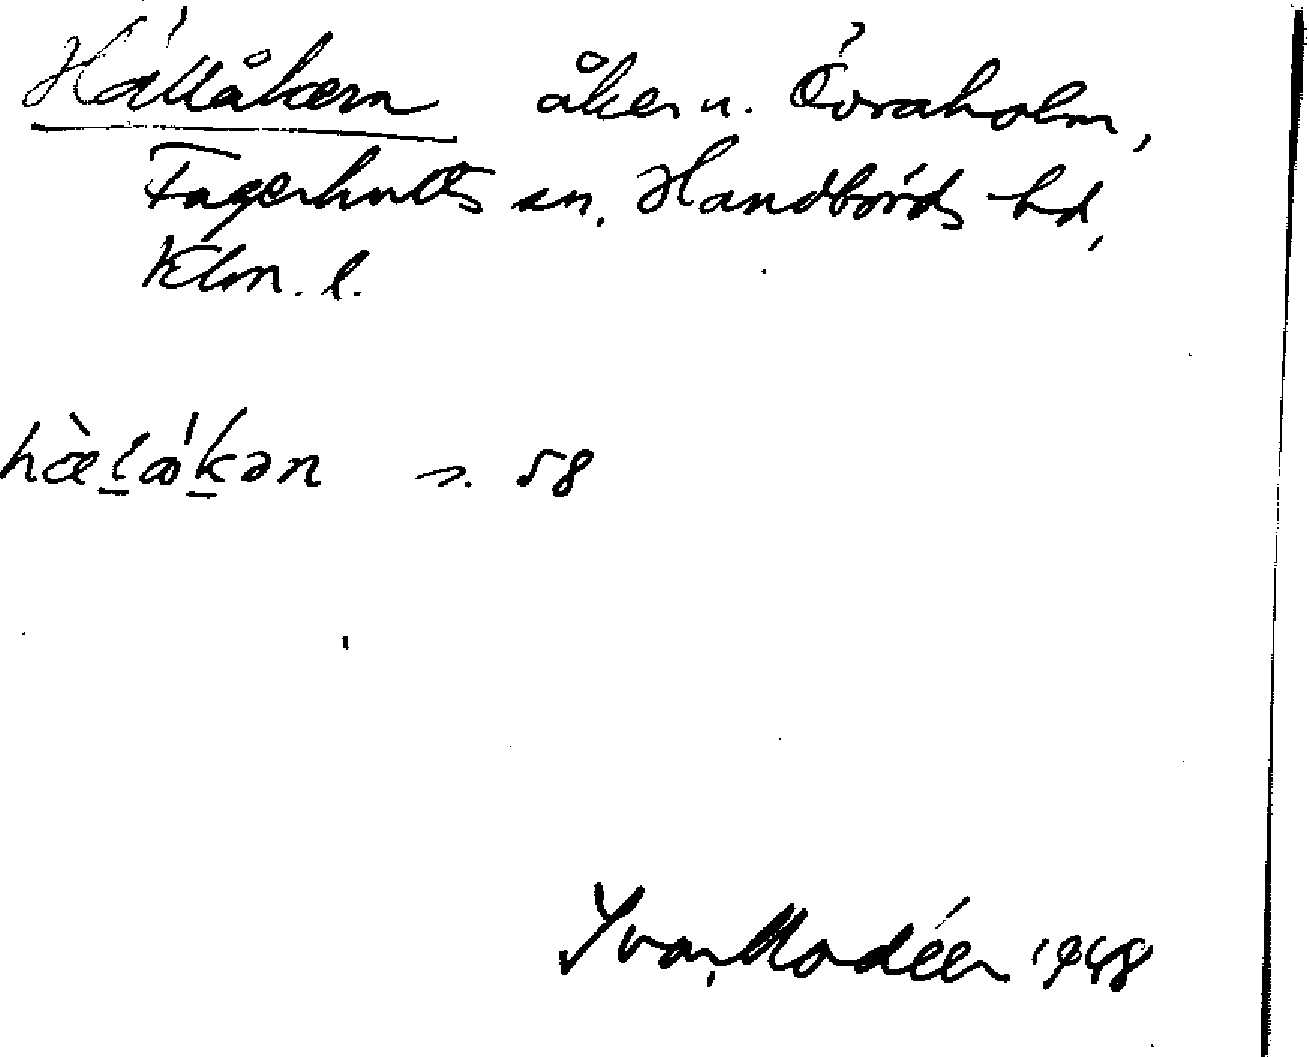 Hällákern åker u. Övraholm,
Fagerhults sn, Handbörds hd,
Klm. l.
hæ̀ḻåˈḵən s. 58
Ivar Modéer 1948